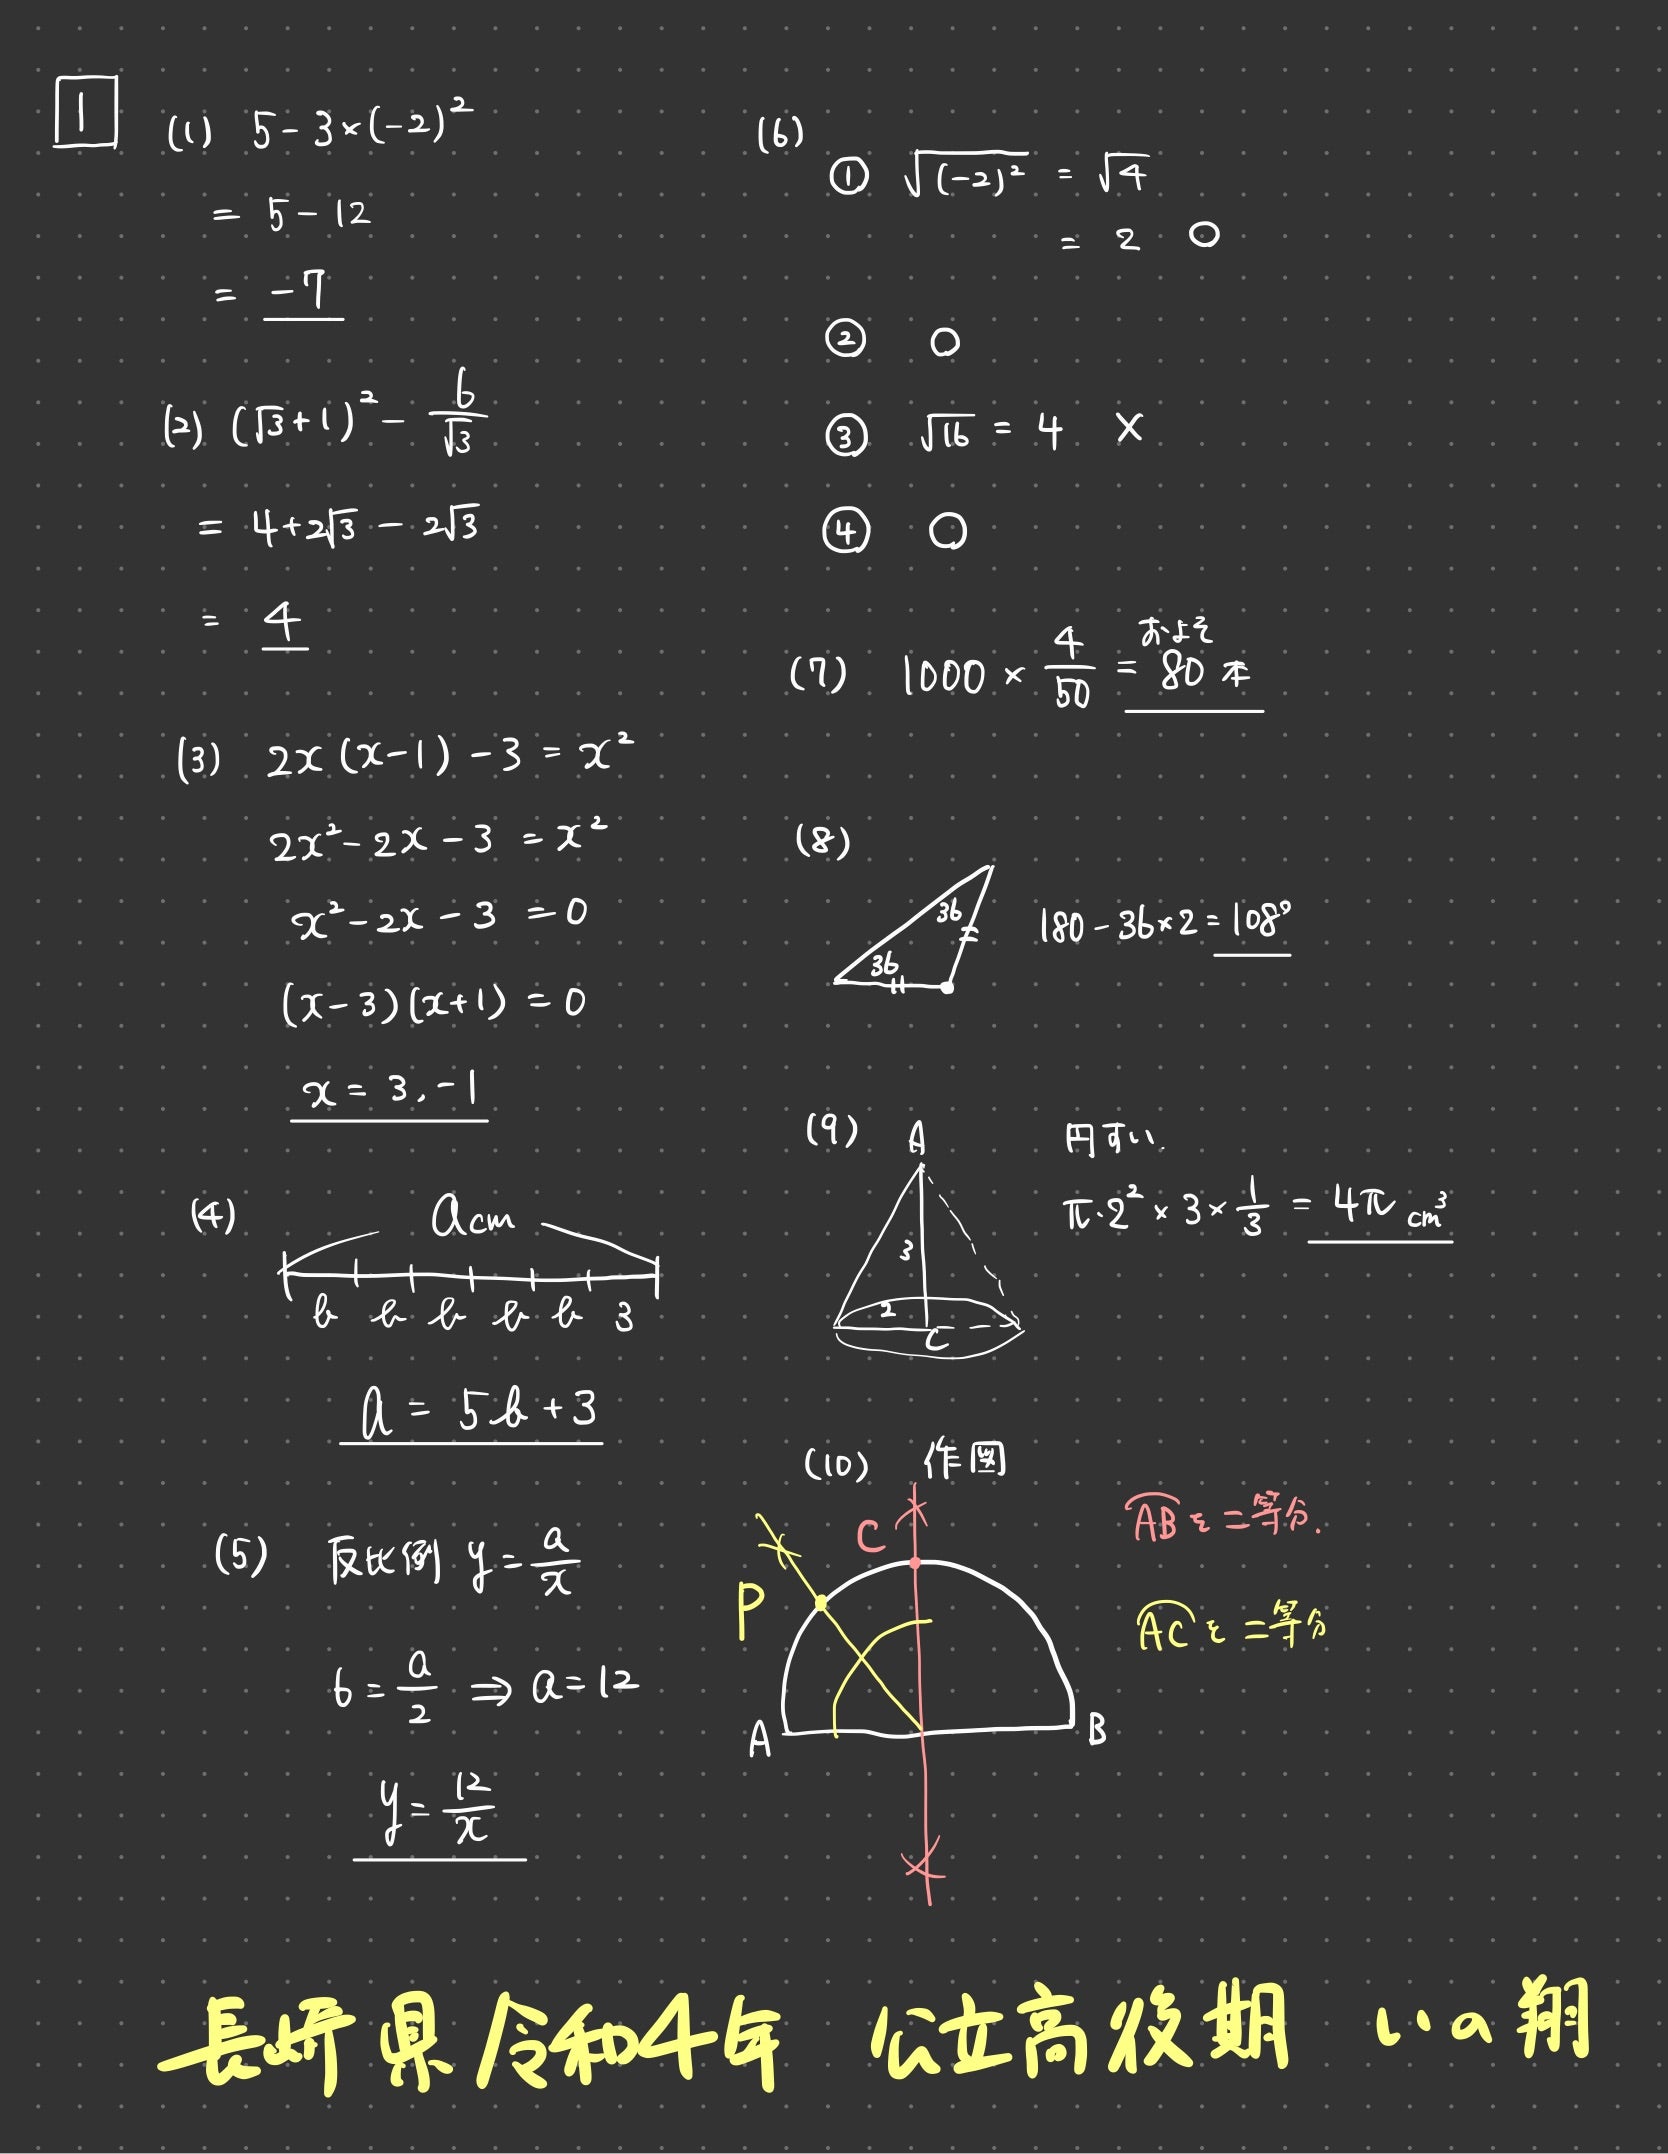 1
(1) 5-3×(-2)²
= 5-12
= -7
(2) (√3+1)² - 6/√3
= 4+2√3 - 2√3
= 4
(3) 2x(x-1)-3=x²
2x²-2x-3=x²
x²-2x-3=0
(x-3)(x+1)=0
x=3,-1
(4) acm
b b b b b 3
a=5b+3
(5) 反比例 y=a/x
6=a/2 ⇒ a=12
y=12/x
(6)
① √(-2)² = √4
= 2 ○
② ○
③ √16 = 4 ×
④ ○
(7) 1000 × 4/50 = およそ 80本
(8)
36
36
180-36×2=108°
(9) A
3
2
C
円すい
π·2²×3×1/3 = 4π cm³
(10) 作図
C
P
A
B
ABを二等分.
ACを二等分
長崎県令和4年 公立高後期 いの翔